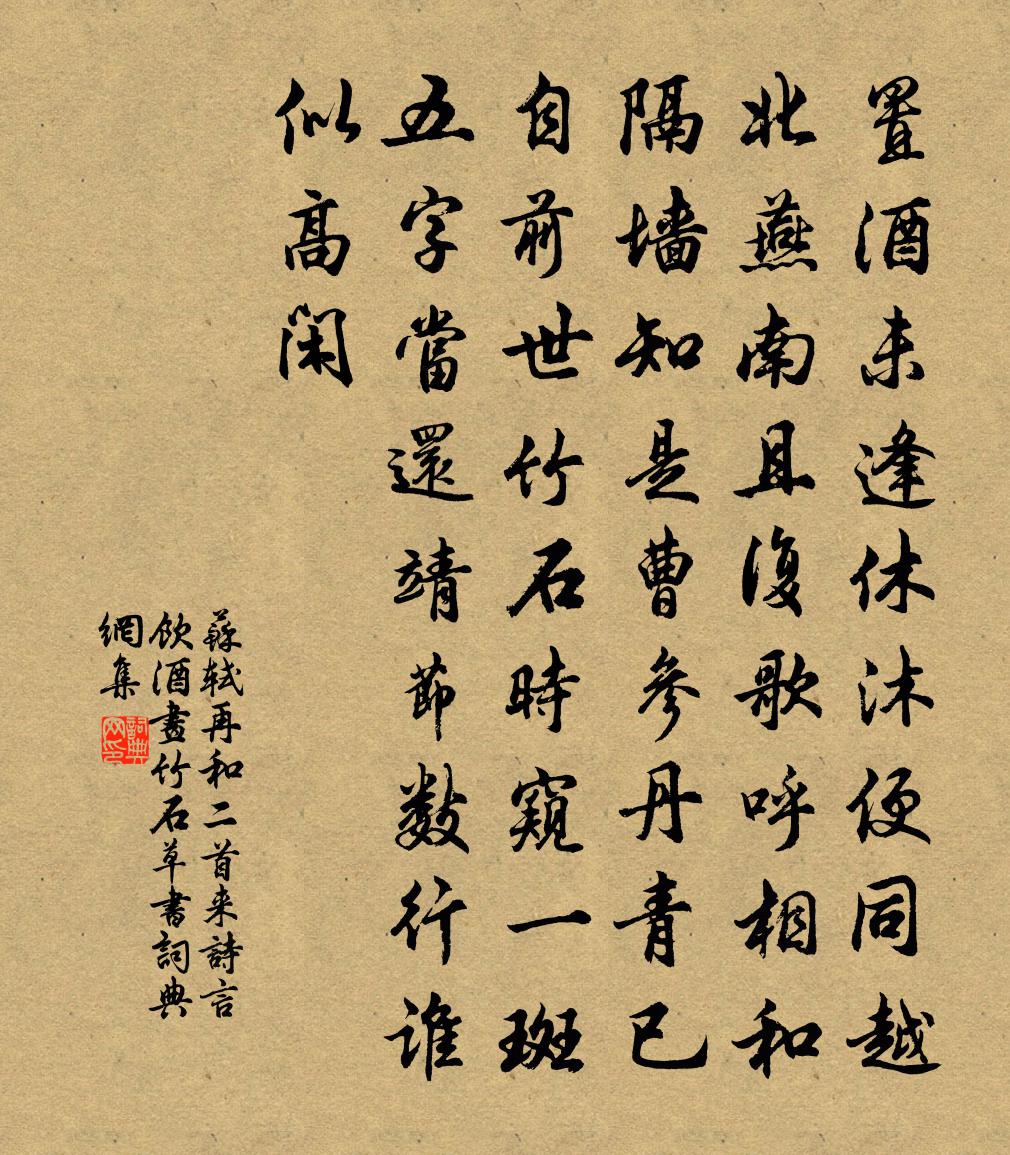 置酒未逢休沐便同越
北燕南且復歌呼相和
隔墙知是曹參丹青已
自前世竹石時窺一斑
五字當還靖節數行誰
似高閑
蘇軾再和二首来詩言
飲酒畫竹石草書詞典
網集
詞典网印